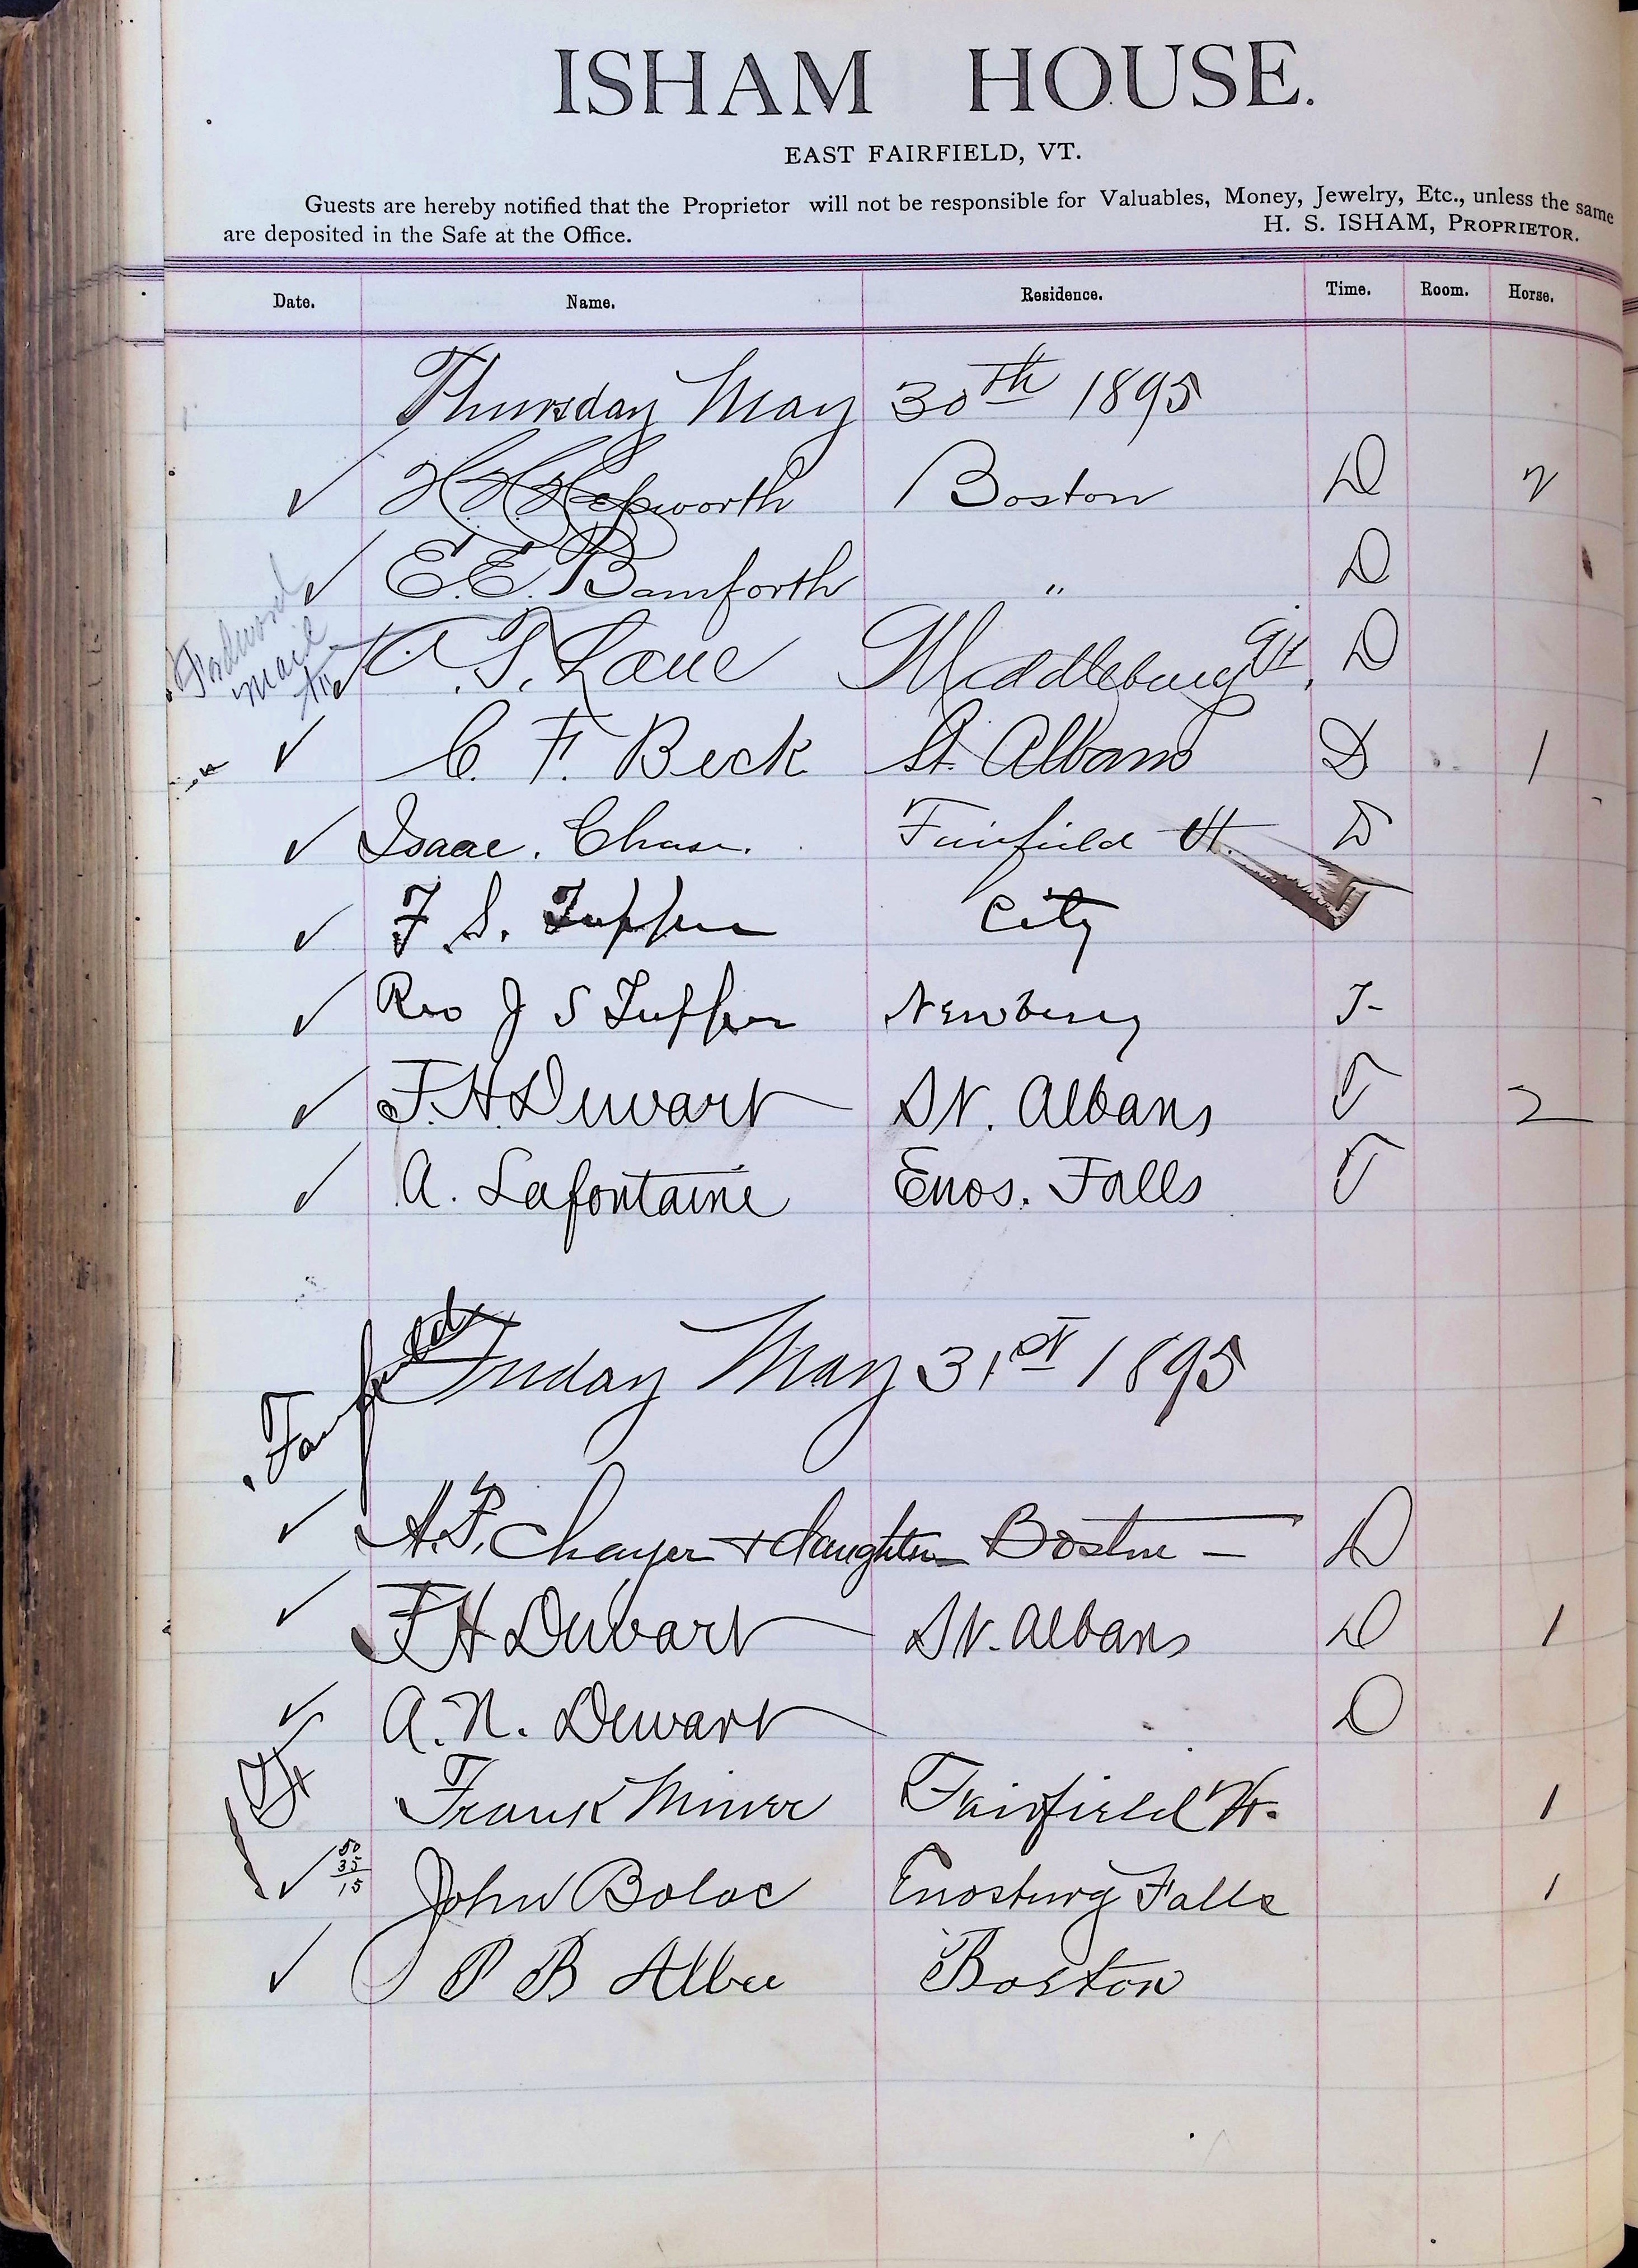 ISHAM HOUSE.
EAST FAIRFIELD, VT.
Guests are hereby notified that the Proprietor will not be responsible for Valuables, Money, Jewelry, Etc., unless the same
are deposited in the Safe at the Office. H. S. ISHAM, PROPRIETOR.
Date. Name. Residence. Time. Room. Horse.
Thursday May 30th 1895
✓ H.H. Hepworth Boston D 2
✓ E.E. Bamforth " D
Forward mail to
✓ A. T. Lane Middlebury Vt. D
✓ C. F. Beck St. Albans D 1
✓ Isaac. Chase. Fairfield Vt. D
✓ F S. Tupper City
✓ Rev J S Tupper Newbury T-
✓ F.H. Dewart St. Albans T 2
✓ A. Lafontaine Enos. Falls T
Friday May 31st 1895
Fairfield
✓ A.P. Chayer + daughter Boston - D
✓ F H Dewart St. Albans D 1
✓ A. N. Dewart D
Frank Minor Fairfield Vt. 1
50
35
15
✓ John Boloc Enosburg Falls 1
✓ P B Albee Boston